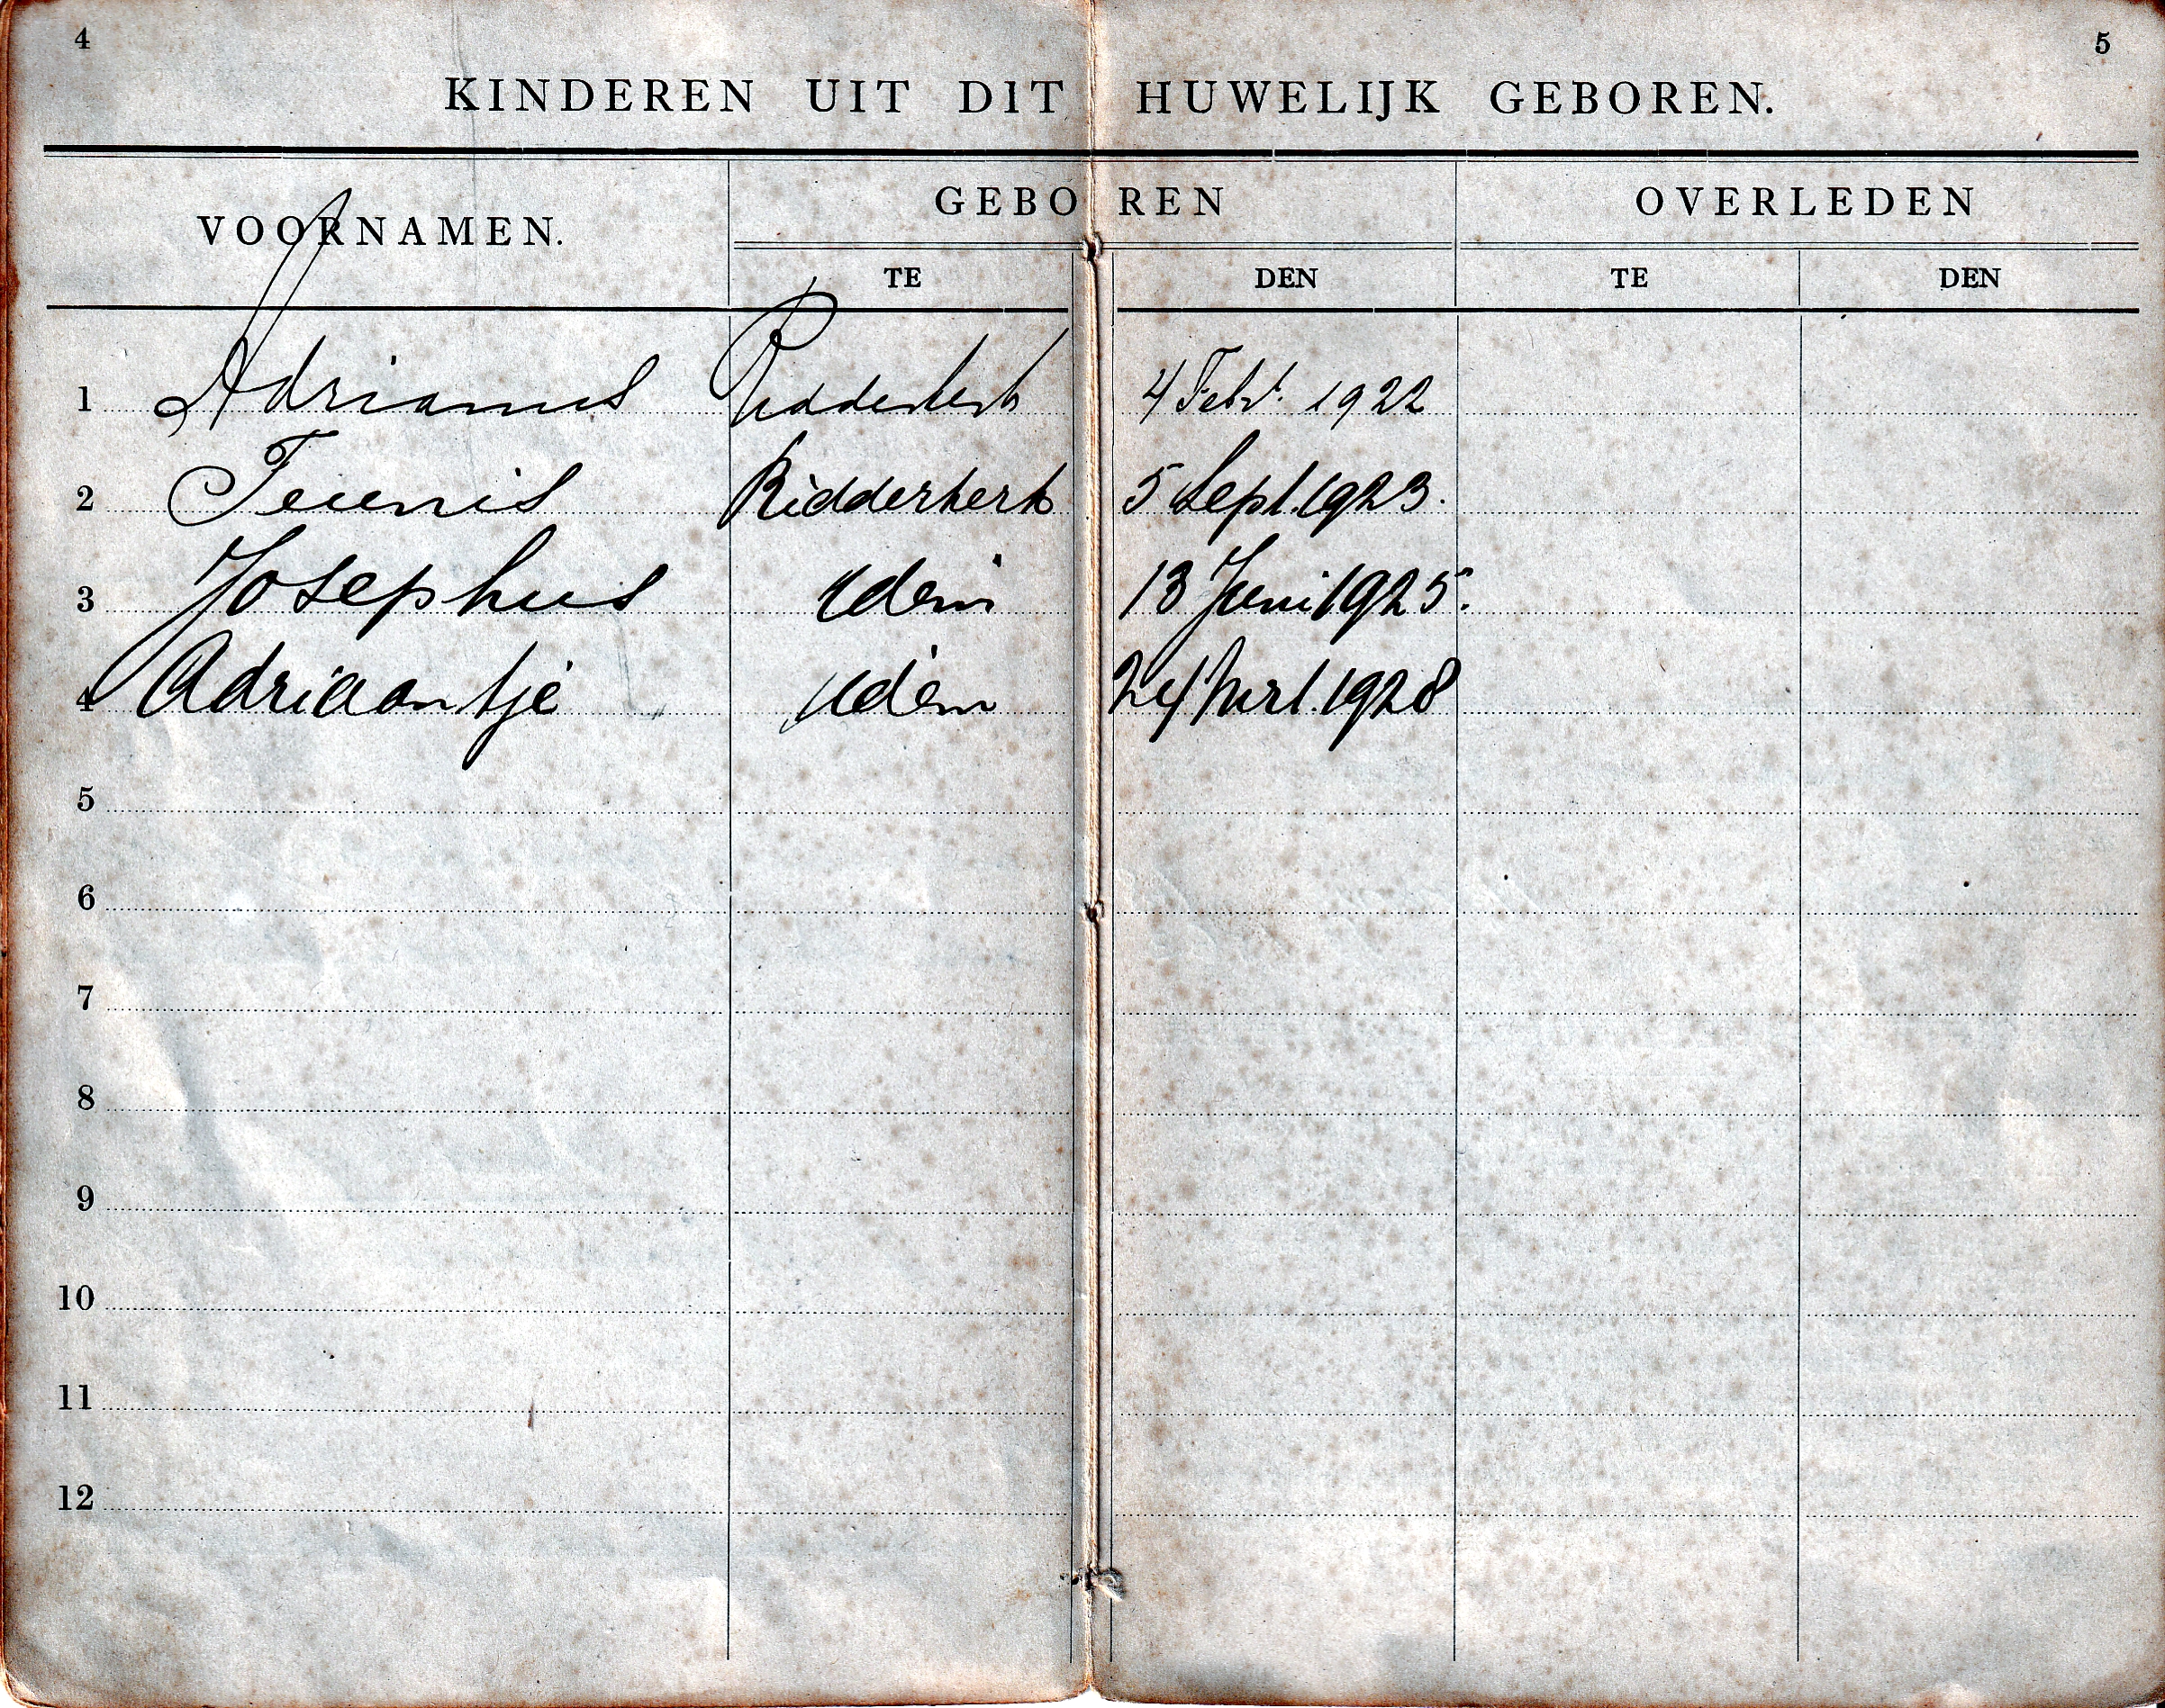 4 5
KINDEREN UIT DIT HUWELIJK GEBOREN.
VOORNAMEN. GEBOREN OVERLEDEN
TE DEN TE DEN
1 Adrianus Ridderkerk 4 Febr. 1922
2 Teunis Ridderkerk 5 Sept. 1923.
3 Josephus Idem 13 Juni 1925.
4 Adriaantje Idem 24 Mrt. 1928
5
6
7
8
9
10
11
12